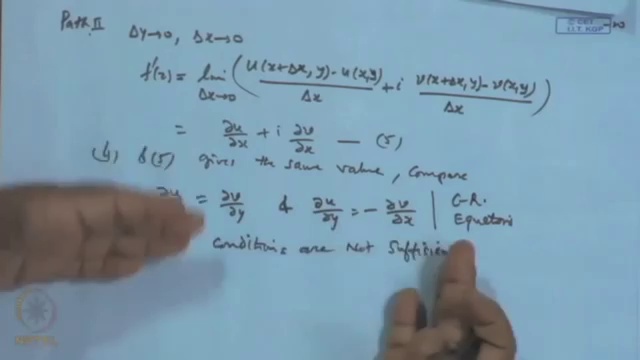 Path II Δy→0, Δx→0
© CET
I.I.T. KGP
f'(z) = lim Δx→0 ( u(x+Δx, y) - u(x,y) / Δx + i v(x+Δx, y) - v(x,y) / Δx )
= ∂u/∂x + i ∂v/∂x — (5)
(4) & (5) gives the same value, Compare
∂u = ∂v/∂y & ∂u/∂y = - ∂v/∂x | C-R. Equations
Conditions are Not Sufficien
NPTEL